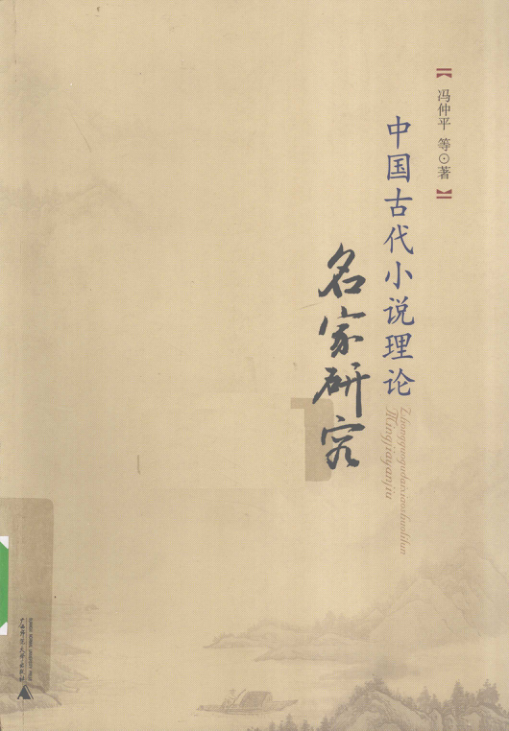 【冯仲平 等⊙著】
中国古代小说理论
名家研究
Zhongguogudaixiaoshuolilun
Mingjiayanjiu
广西师范大学出版社
GUANGXI NORMAL UNIVERSITY PRESS